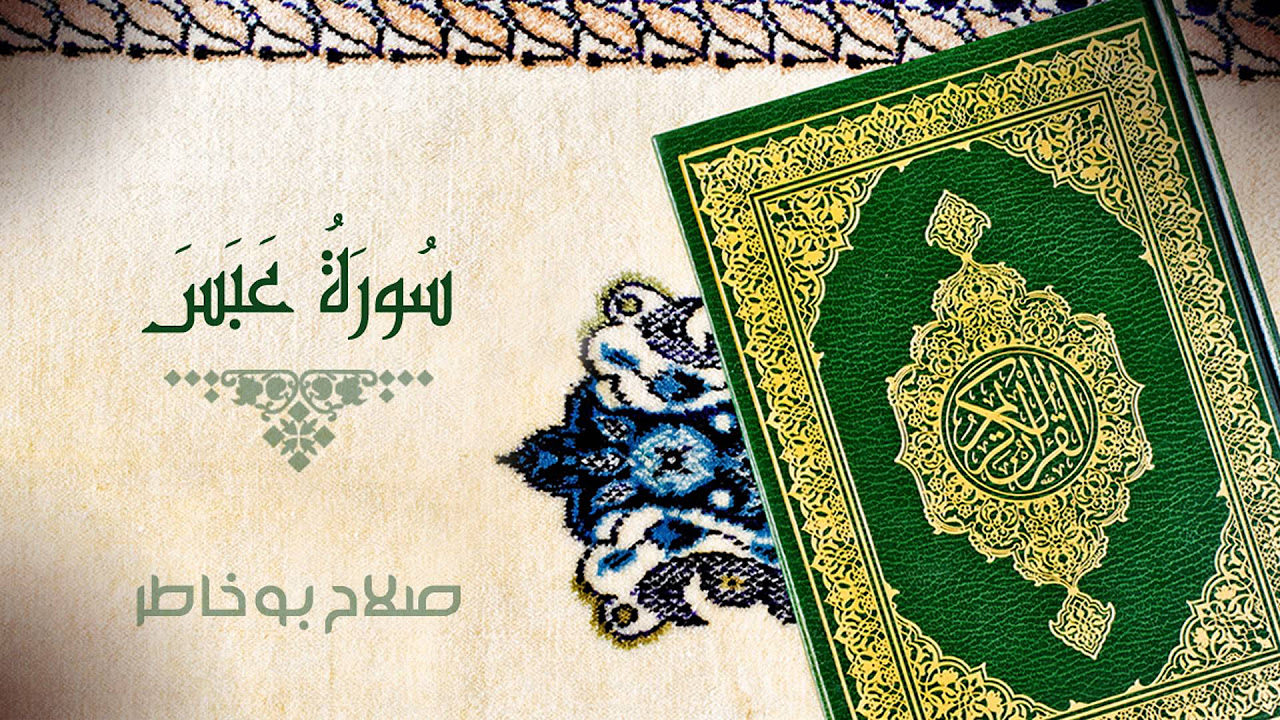 سُورَةُ عَبَسَ
صلاح بو خاطر
القرآن الكريم